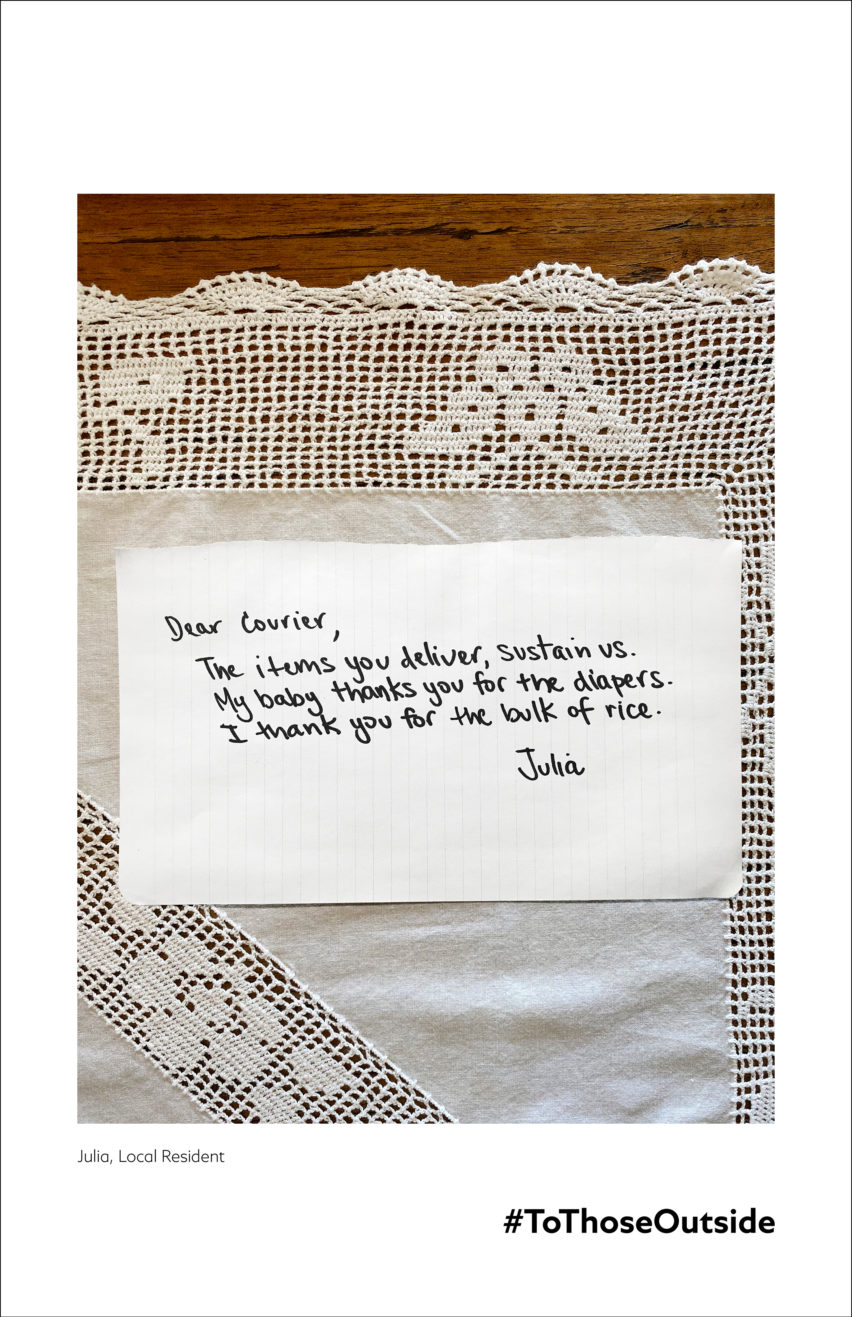 Dear Courier,
The items you deliver, sustain us.
My baby thanks you for the diapers.
I thank you for the bulk of rice.
Julia
Julia, Local Resident
#ToThoseOutside